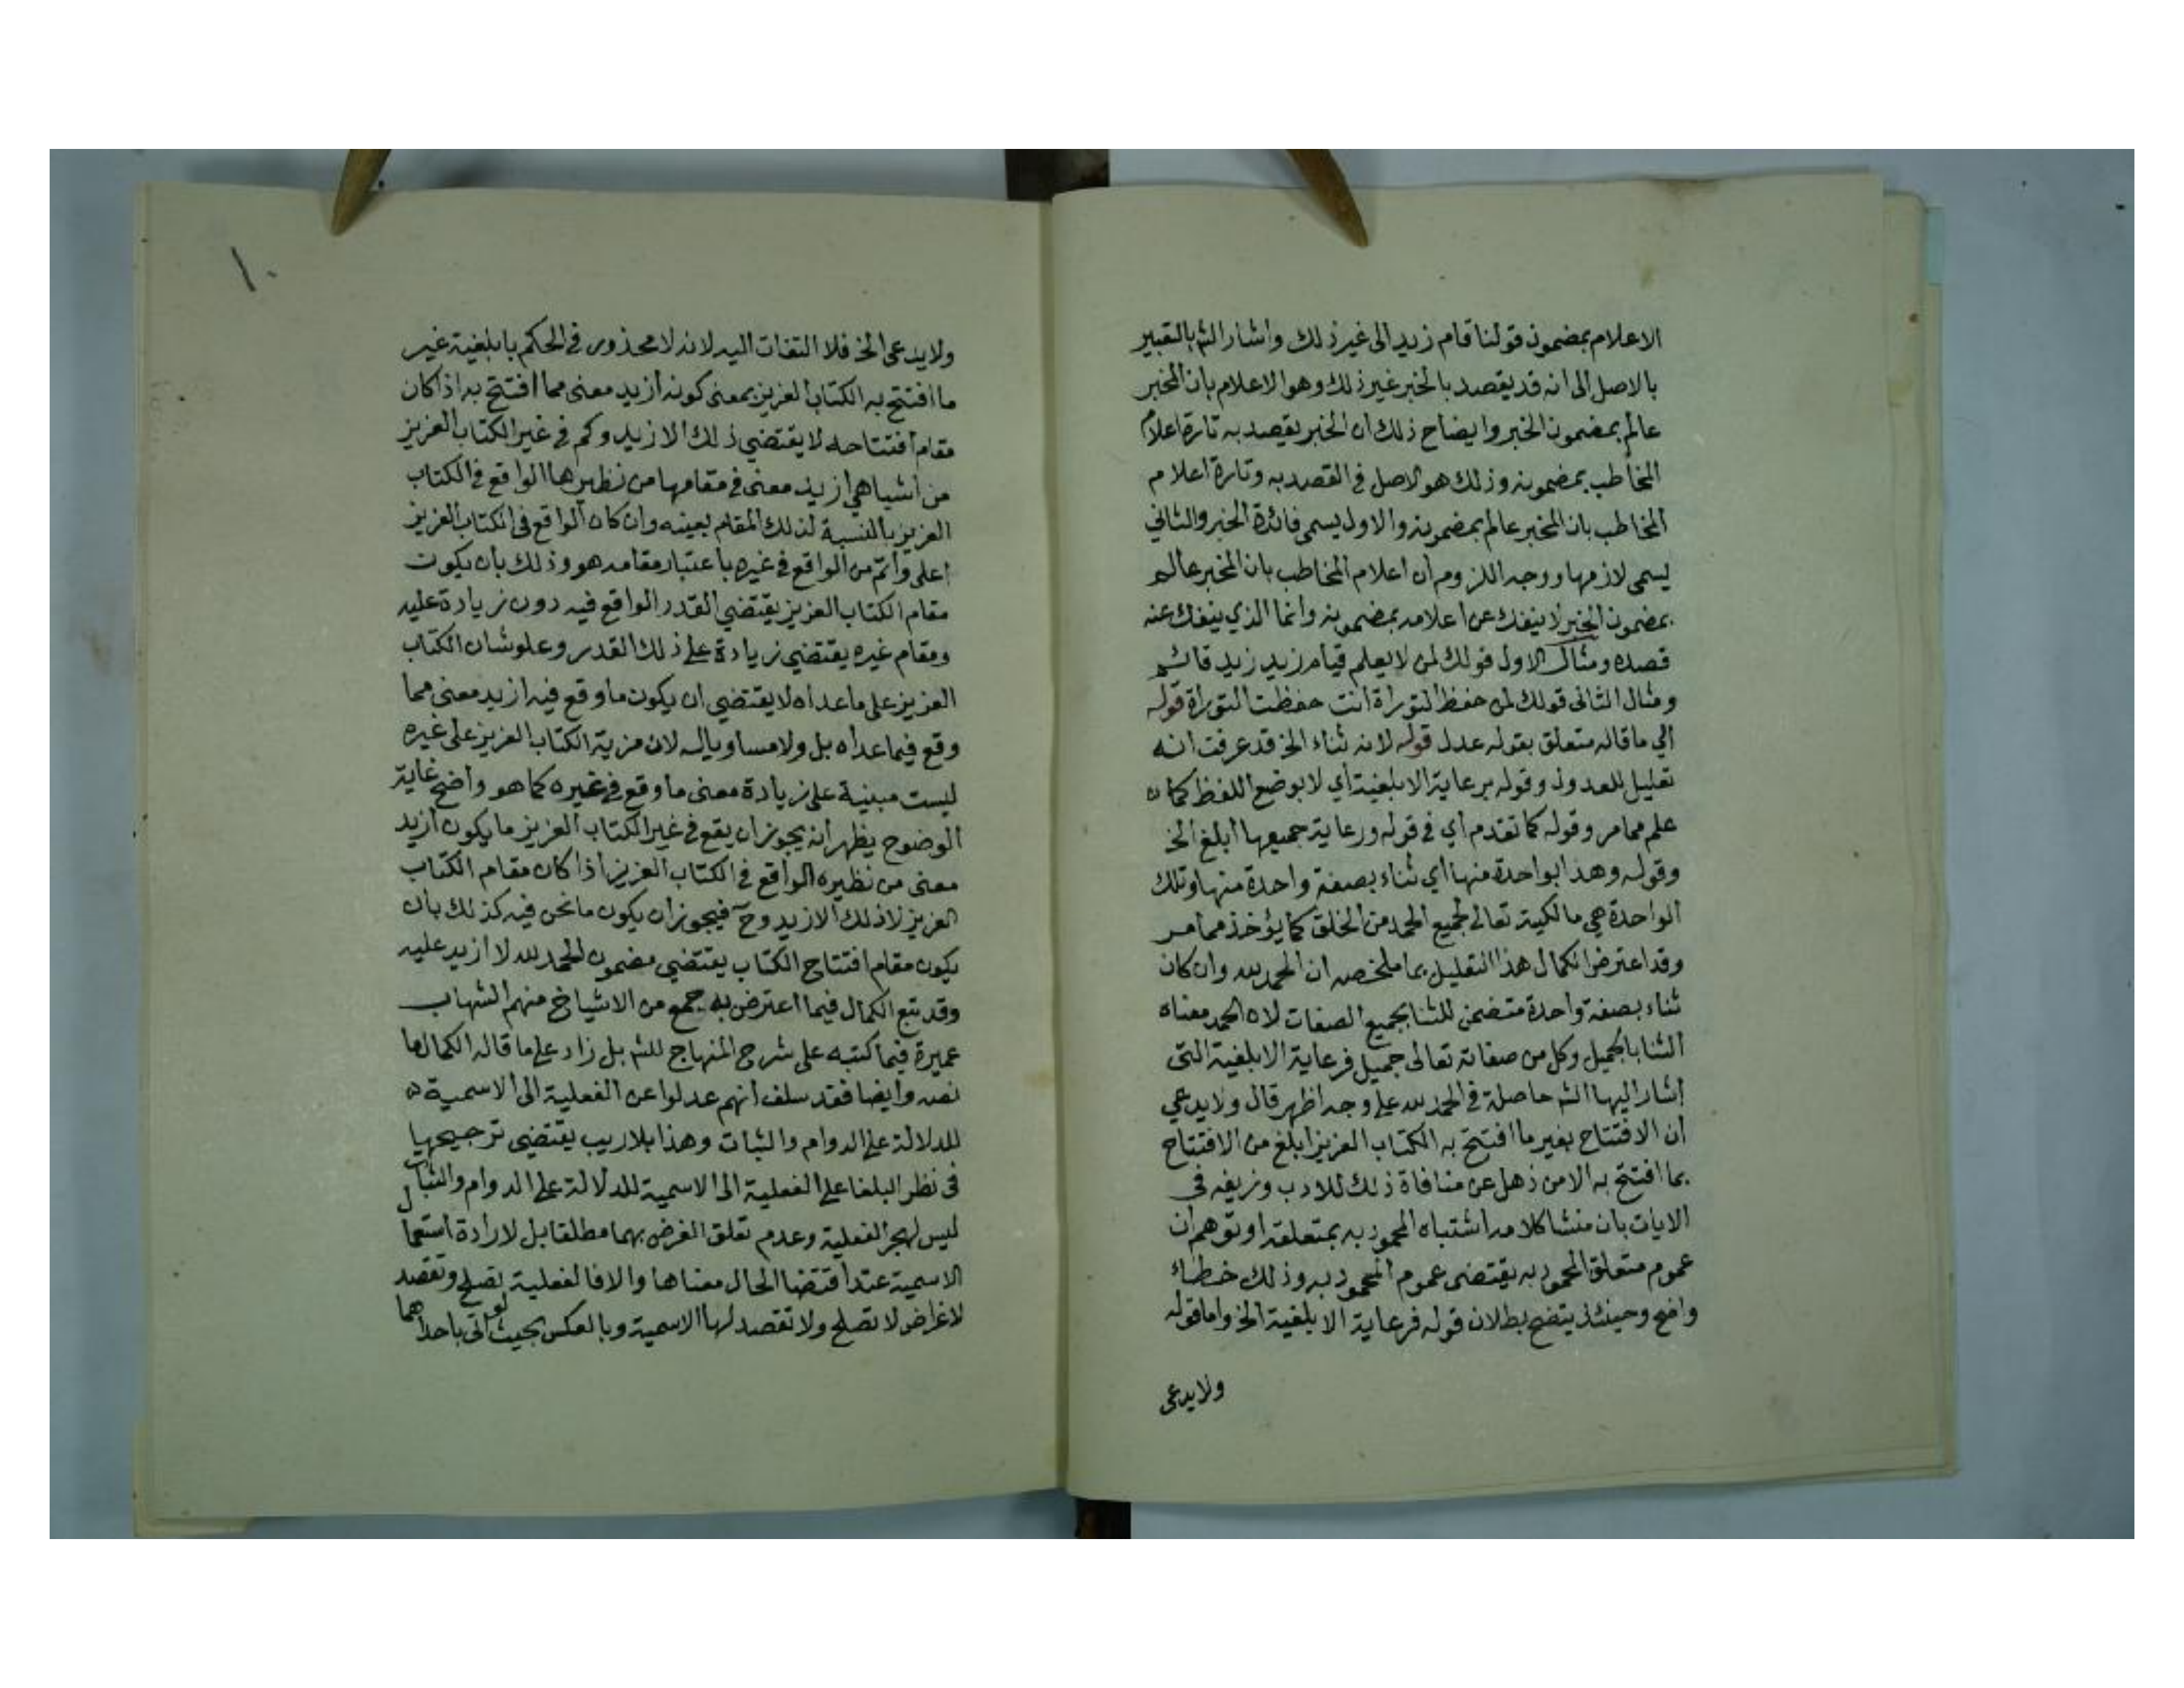 الاعلام بمضمون قولنا قام زيد الى غير ذلك واشار الش بالتعبير
بالاصل الى انه قد يقصد بالخبر غير ذلك وهو الاعلام بان المخبر
عالم بمضمون الخبر وايضاح ذلك ان الخبر يقصد به تارة اعلام
المخاطب بمضمونه وذلك هو الاصل في القصد به وتارة اعلام
المخاطب بان المخبر عالم بمضمونه والاول يسمى فائدة الخبر والثاني
يسمى لازمها ووجه اللزوم ان اعلام المخاطب بان المخبر عالم
بمضمون الخبر لا ينفك عن اعلامه بمضمونه وانما الذي ينفك عنه
قصده ومثال الاول قولك لمن لا يعلم قيام زيد زيد قائم
ومثال الثاني قولك لمن حفظ التوراة انت حفظت التوراة قوله
الي ما قاله متعلق بقوله عدل قوله لانه ثناء الخ قد عرفت انه
تعليل للعدول وقوله برعاية الابلغية اي لا بوضع اللفظ كما
علم مما مر وقوله كما تقدم اي في قوله ورعاية جميعها ابلغ الخ
وقوله وهذا بواحدة منها اي ثناء بصفة واحدة منها وتلك
الواحدة هي مالكيته تعالى لجميع الحمد من الخلق كما يؤخذ مما مر
وقد اعترض الكمال هذا التعليل بما ملخصه ان الحمد لله وان كان
ثناء بصفة واحدة متضمن للثنا بجميع الصفات لان الحمد معناه
الثنا بالجميل وكل من صفاته تعالى جميل فرعاية الابلغية التى
اشار اليها الش حاصلة في الحمد لله على وجه اظهر قال ولا يدعي
ان الافتتاح بغير ما افتتح به الكتاب العزيز ابلغ من الافتتاح
بما افتتح به الا من ذهل عن منافاة ذلك للادب وزيفه في
الايات بان منشا كلامه اشتباه المحمود به بمتعلقه او توهم ان
عموم متعلق المحمود به يقتضى عموم المحمود به وذلك خطاء
واضح وحينئذ يتضح بطلان قوله فرعاية الابلغية الخ واما قوله
ولا يدعى
١٠
ولا يدعى الخ فلا التفات اليه لانه لا محذور في الحكم بابلغية غير
ما افتتح به الكتاب العزيز بمعنى كونه ازيد معنى مما افتتح به اذا كان
مقام افتتاحه لا يقتضي ذلك الازيد وكم في غير الكتاب العزيز
من اشيا هي ازيد معنى في مقامها من نظيرها الواقع في الكتاب
العزيز بالنسبة لذلك المقام بعينه وان كان الواقع في الكتاب العزيز
اعلى واتم من الواقع في غيره باعتبار مقامه هو وذلك بان يكون
مقام الكتاب العزيز يقتضي القدر الواقع فيه دون زيادة عليه
ومقام غيره يقتضي زيادة على ذلك القدر وعلو شان الكتاب
العزيز على ما عداه لا يقتضي ان يكون ما وقع فيه ازيد معنى مما
وقع فيما عداه بل ولا مساويا له لان مزية الكتاب العزيز على غيره
ليست مبنية على زيادة معنى ما وقع في غيره كما هو واضح غاية
الوضوح يظهر انه يجوز ان يقع في غير الكتاب العزيز ما يكون ازيد
معنى من نظيره الواقع في الكتاب العزيز اذا كان مقام الكتاب
العزيز لا ذلك الازيد وح فيجوز ان يكون ما نحن فيه كذلك بان
يكون مقام افتتاح الكتاب يقتضي مضمون الحمد لله لا ازيد عليه
وقد تبع الكمال فيما اعترض به جمع من الاشياخ منهم الشهاب
عميرة فيما كتبه على شرح المنهاج للش بل زاد على ما قاله الكمال ما
نصه وايضا فقد سلف انهم عدلوا عن الفعلية الى الاسمية
للدلالة على الدوام والثبات وهذا بلا ريب يقتضي ترجيحها
في نظر البلغا على الفعلية الى الاسمية للدلالة على الدوام والثبات
ليس لهجر الفعلية وعدم تعلق الغرض بهما مطلقا بل لارادة استعمال
الاسمية عند اقتضا الحال معناها والا فالفعلية تصلح وتقصد
لاغراض لا تصلح ولا تقصد لها الاسمية وبالعكس بحيث لو اتى باحداهما